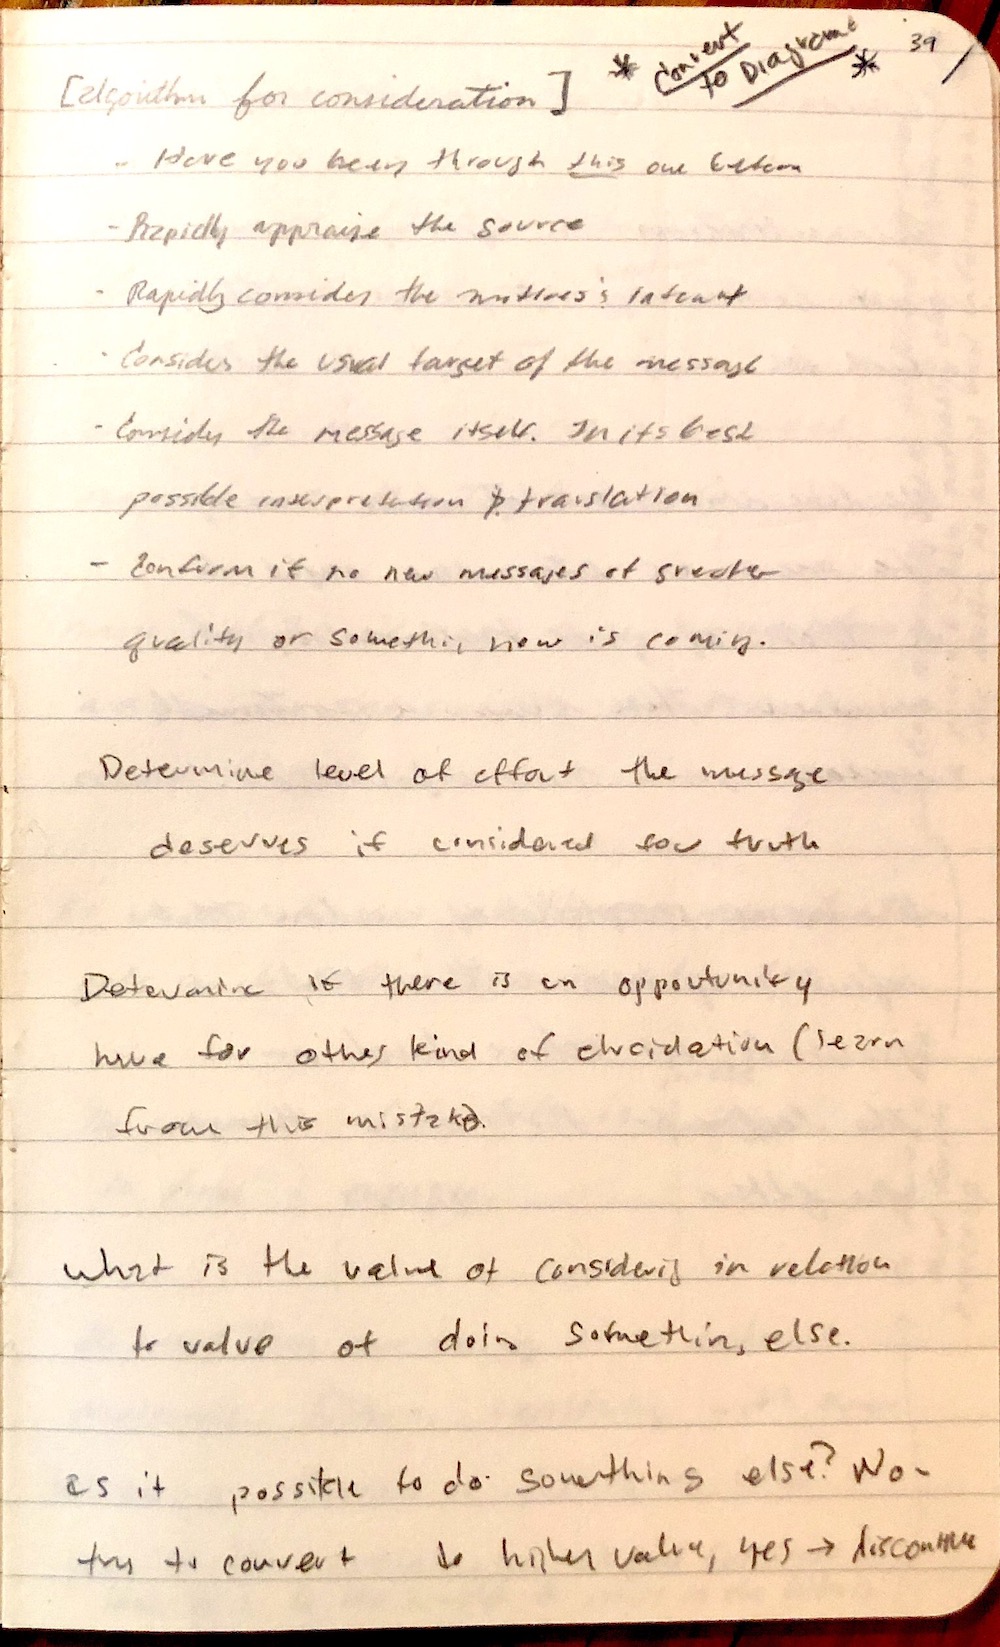 39
* Convert
to Diagram *
[algorithm for consideration]
- Have you been through this one before
- Rapidly appraise the source
- Rapidly consider the intent
- Consider the usual target of the message
- Consider the message itself. In its best
possible interpretation & translation
- Confirm if no new messages of greater
quality or somethin, new is coming.
Determine level of effort the message
deserves if considered for truth
Determine if there is an opportunity
here for other kind of elucidation (learn
from this mistake).
What is the value of considering in relation
to value of doin somethin, else.
is it possible to do something else? No-
try to convert to higher value, yes → discontinue